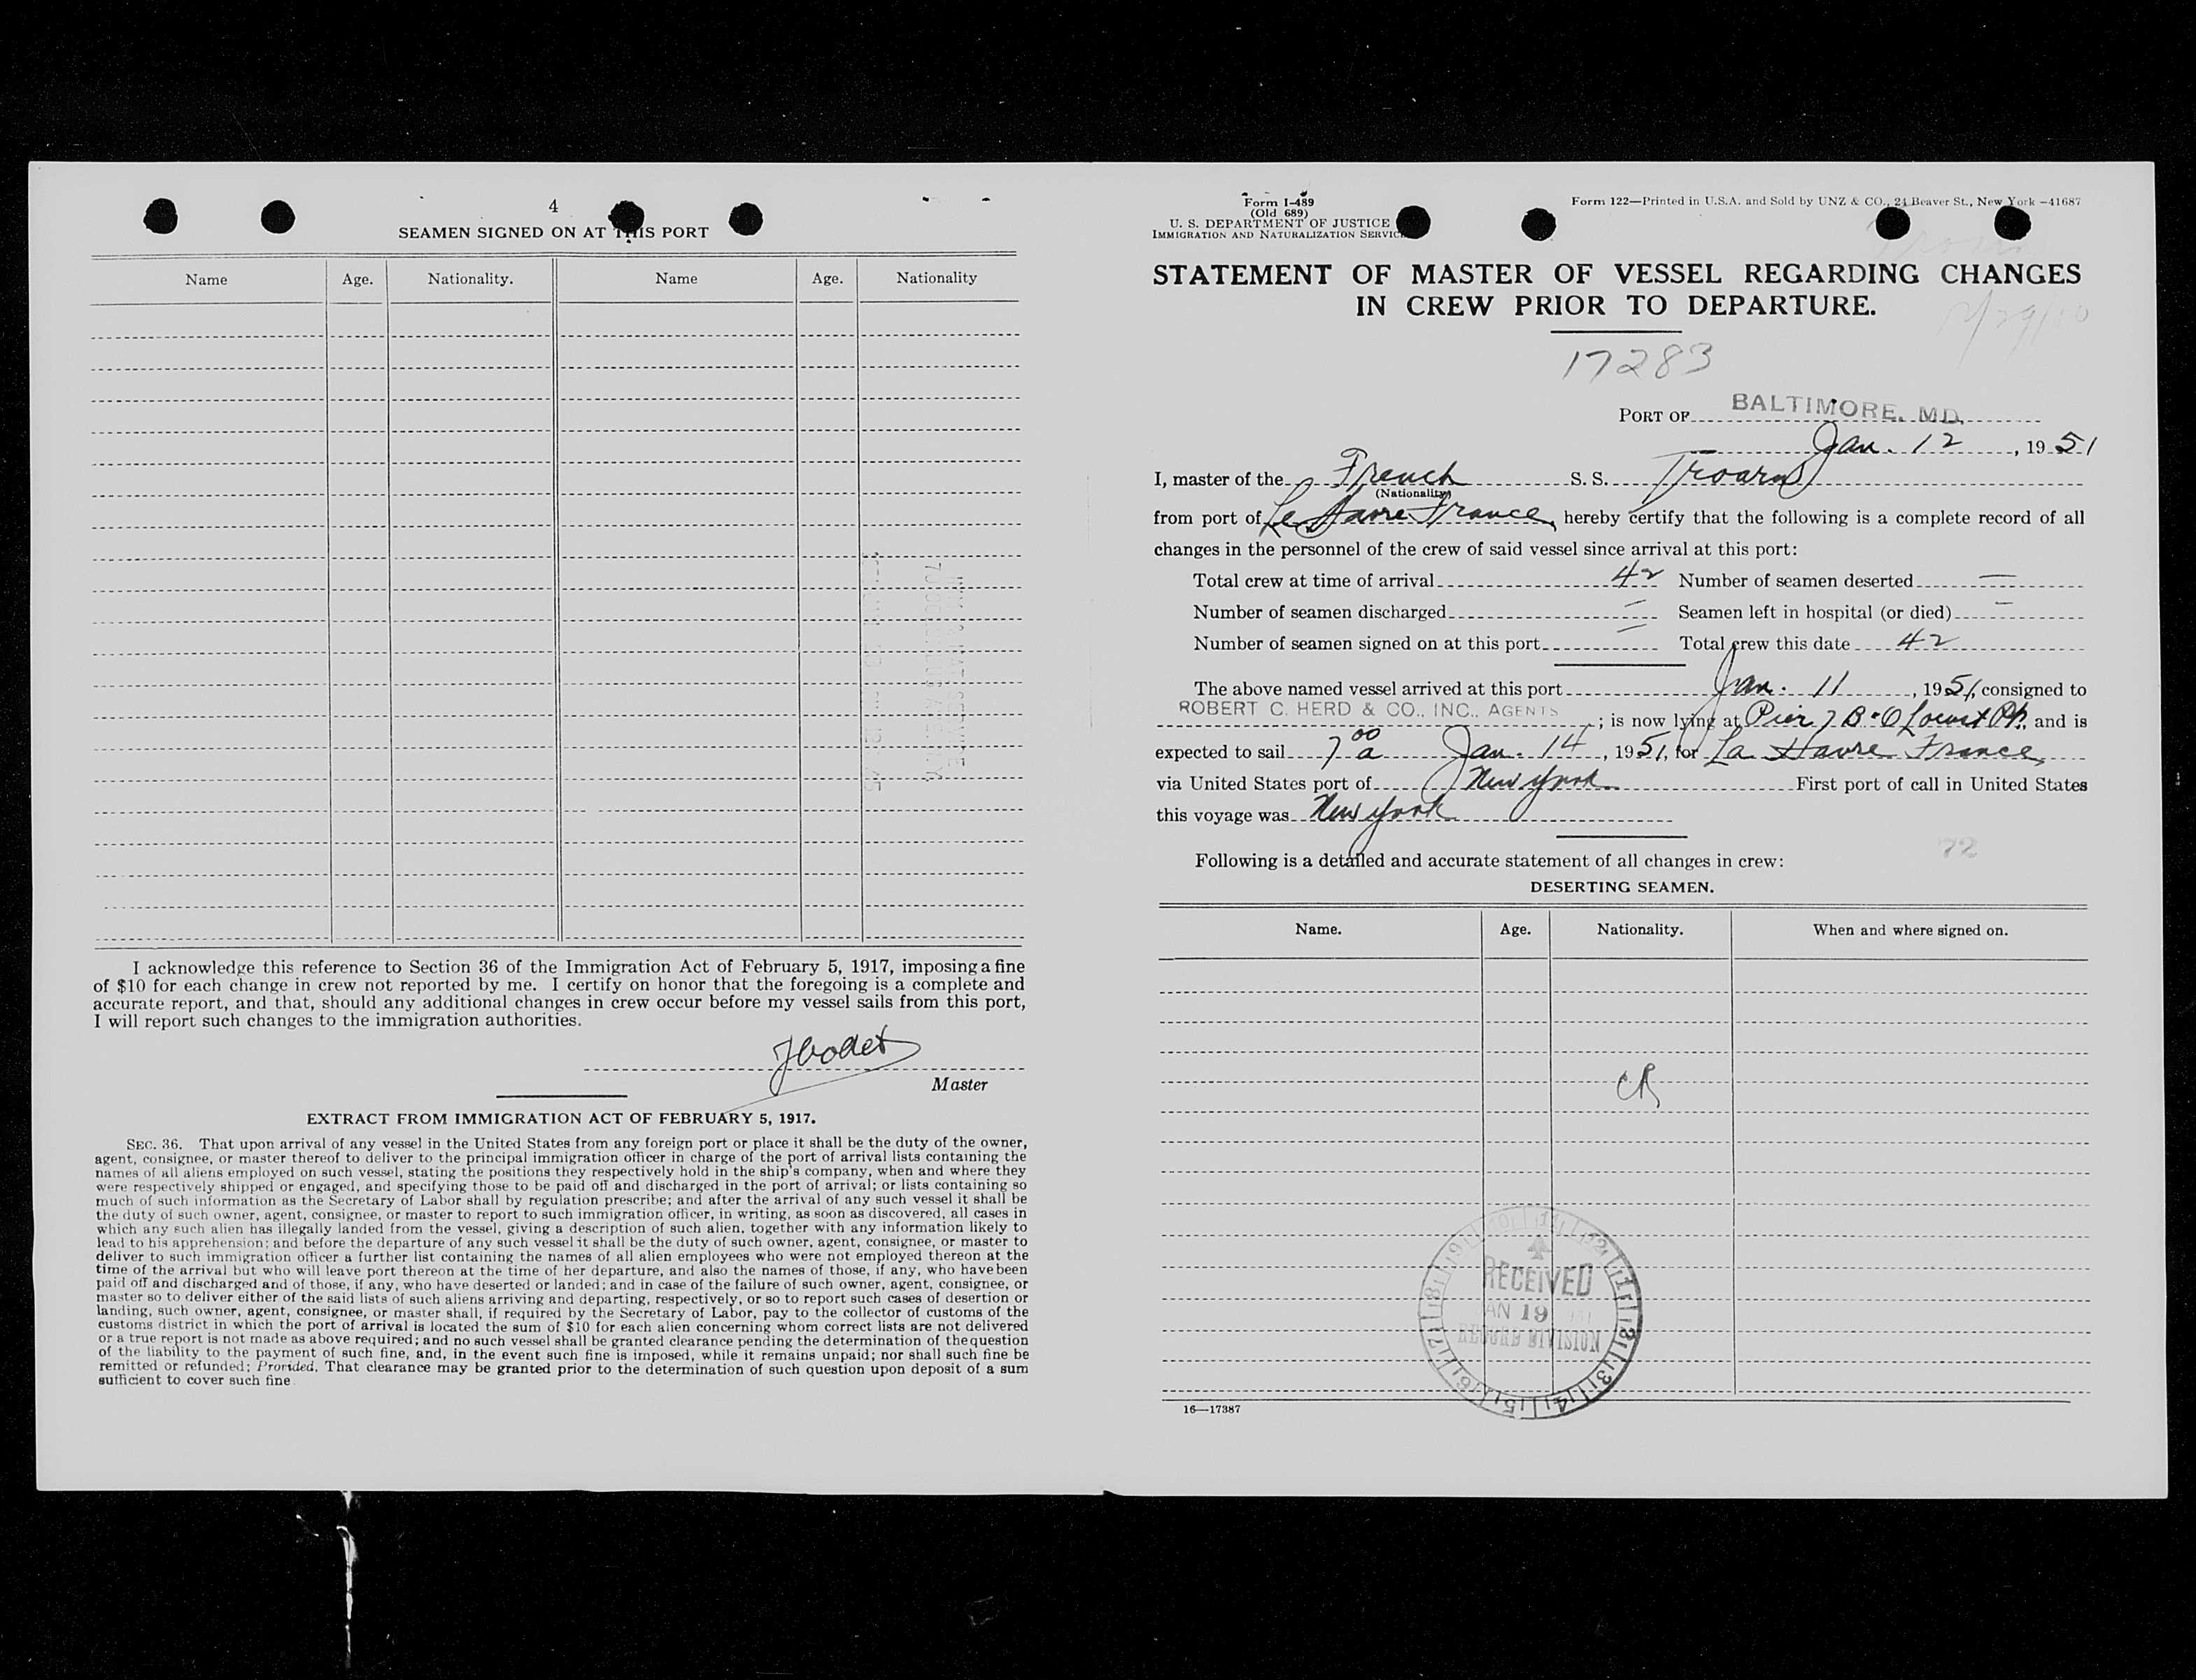 4
SEAMEN SIGNED ON AT THIS PORT
Name Age. Nationality. Name Age. Nationality
I acknowledge this reference to Section 36 of the Immigration Act of February 5, 1917, imposing a fine
of $10 for each change in crew not reported by me. I certify on honor that the foregoing is a complete and
accurate report, and that, should any additional changes in crew occur before my vessel sails from this port,
I will report such changes to the immigration authorities.
Master
EXTRACT FROM IMMIGRATION ACT OF FEBRUARY 5, 1917.
SEC. 36. That upon arrival of any vessel in the United States from any foreign port or place it shall be the duty of the owner,
agent, consignee, or master thereof to deliver to the principal immigration officer in charge of the port of arrival lists containing the
names of all aliens employed on such vessel, stating the positions they respectively hold in the ship's company, when and where they
were respectively shipped or engaged, and specifying those to be paid off and discharged in the port of arrival; or lists containing so
much of such information as the Secretary of Labor shall by regulation prescribe; and after the arrival of any such vessel it shall be
the duty of such owner, agent, consignee, or master to report to such immigration officer, in writing, as soon as discovered, all cases in
which any such alien has illegally landed from the vessel, giving a description of such alien, together with any information likely to
lead to his apprehension; and before the departure of any such vessel it shall be the duty of such owner, agent, consignee, or master to
deliver to such immigration officer a further list containing the names of all alien employees who were not employed thereon at the
time of the arrival but who will leave port thereon at the time of her departure, and also the names of those, if any, who have been
paid off and discharged and of those, if any, who have deserted or landed; and in case of the failure of such owner, agent, consignee, or
master so to deliver either of the said lists of such aliens arriving and departing, respectively, or so to report such cases of desertion or
landing, such owner, agent, consignee, or master shall, if required by the Secretary of Labor, pay to the collector of customs of the
customs district in which the port of arrival is located the sum of $10 for each alien concerning whom correct lists are not delivered
or a true report is not made as above required; and no such vessel shall be granted clearance pending the determination of the question
of the liability to the payment of such fine, and, in the event such fine is imposed, while it remains unpaid; nor shall such fine be
remitted or refunded; Provided, That clearance may be granted prior to the determination of such question upon deposit of a sum
sufficient to cover such fine
Form I-489
(Old 689)
U. S. DEPARTMENT OF JUSTICE
IMMIGRATION AND NATURALIZATION SERVICE
Form 122—Printed in U.S.A. and Sold by UNZ & CO., 24 Beaver St., New York —41687
STATEMENT OF MASTER OF VESSEL REGARDING CHANGES
IN CREW PRIOR TO DEPARTURE.
17283
PORT OF BALTIMORE, MD.
Jan. 12, 1951
I, master of the French S. S. Troarn
(Nationality)
from port of Le Havre France, hereby certify that the following is a complete record of all
changes in the personnel of the crew of said vessel since arrival at this port:
Total crew at time of arrival 42 Number of seamen deserted —
Number of seamen discharged — Seamen left in hospital (or died) —
Number of seamen signed on at this port — Total crew this date 42
The above named vessel arrived at this port Jan. 11, 1951, consigned to
ROBERT C. HERD & CO., INC., AGENTS; is now lying at Pier 7 B & O Locust Pt. and is
expected to sail 7 00 a Jan. 14, 1951, for La Havre France
via United States port of New York First port of call in United States
this voyage was New York
72
Following is a detailed and accurate statement of all changes in crew:
DESERTING SEAMEN.
Name. Age. Nationality. When and where signed on.
CR
RECEIVED
JAN 19
RECORD DIVISION
16—17387